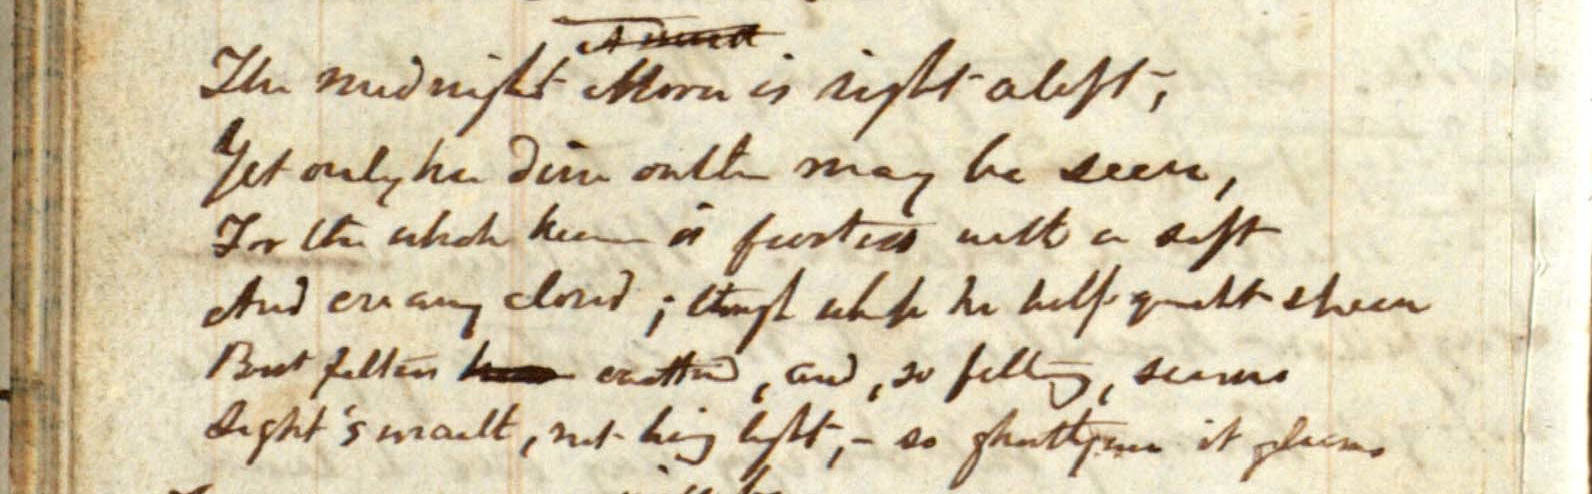 The midnight Moon is right aloft;
Yet only her dim outline may be seen,
For the whole heaven is fleeted with a soft
And creamy cloud; through which her half-quench't sheen
But filters earthward, and, so filtering, seems
Light's wraith, not living light, – so ghostly it gleams